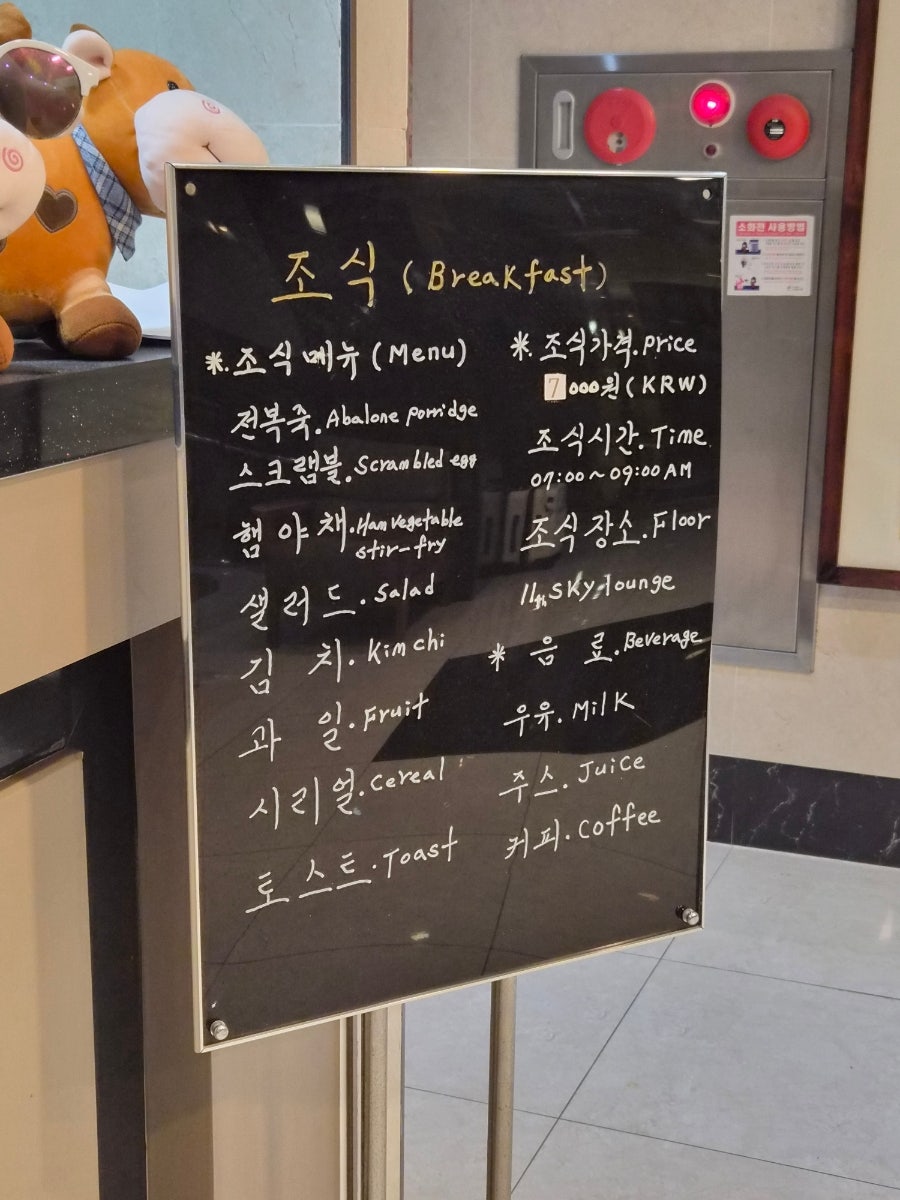 조식 (Breakfast)
*. 조식메뉴 (Menu)
전복죽. Abalone porridge
스크램블. Scrambled egg
햄야채. Ham vegetable
stir-fry
샐러드. Salad
김치. Kimchi
과일. Fruit
시리얼. Cereal
토스트. Toast
*. 조식가격. Price
7000원 (KRW)
조식시간. Time
07:00~09:00 AM
조식장소. Floor
11th Sky lounge
* 음료. Beverage
우유. Milk
주스. Juice
커피. Coffee
소화전 사용방법